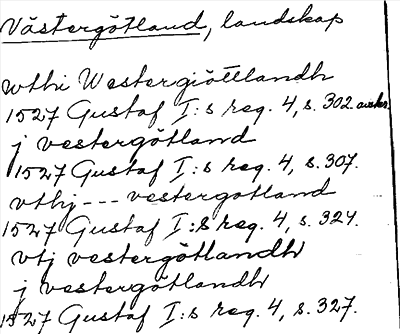 Västergötland, landskap
wthi Westergiöttlandh
1527 Gustaf I:s reg. 4, s. 302. avskr.
j vestergötland
1527 Gustaf I:s reg. 4, s. 307.
vthj --- vestergotland
1527 Gustaf I:s reg. 4, s. 324.
vtj vestergötlandh
j vestergötlandh
1527 Gustaf I:s reg. 4, s. 327.